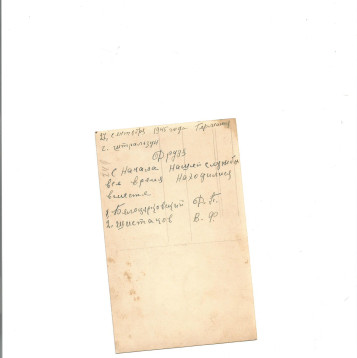 23, сентября 1945 года Германия
г. Штральзун
Друзя
с начала нашей службы
все время находились
вместе
1. Белоцерковский Ф. П.
2. Шестаков В. Ф.